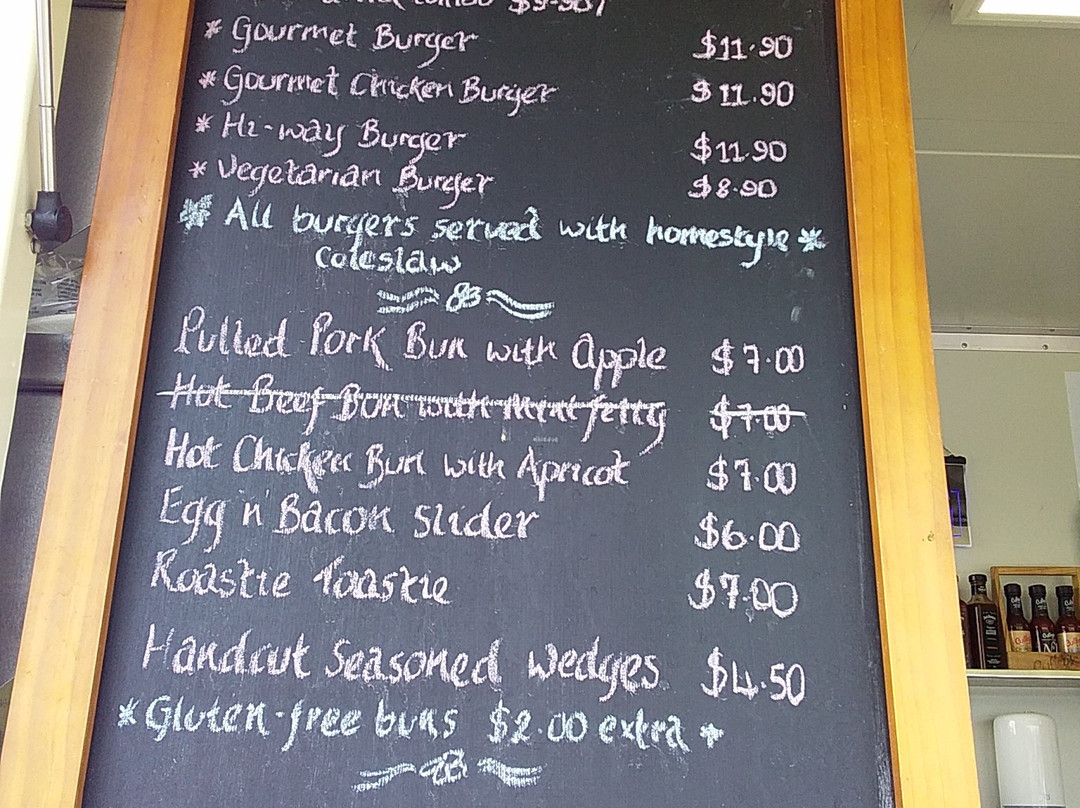 combo $9.90)
* Gourmet Burger $11.90
* Gourmet Chicken Burger $11.90
* Hi-way Burger $11.90
* Vegetarian Burger $8.90
* All burgers served with homestyle *
Coleslaw
Pulled Pork Bun with Apple $7.00
Hot Beef Bun with Mint jelly $7.00
Hot Chicken Bun with Apricot $7.00
Egg n' Bacon Slider $6.00
Roastie Toastie $7.00
Handcut Seasoned Wedges $4.50
* Gluten-free buns $2.00 extra *